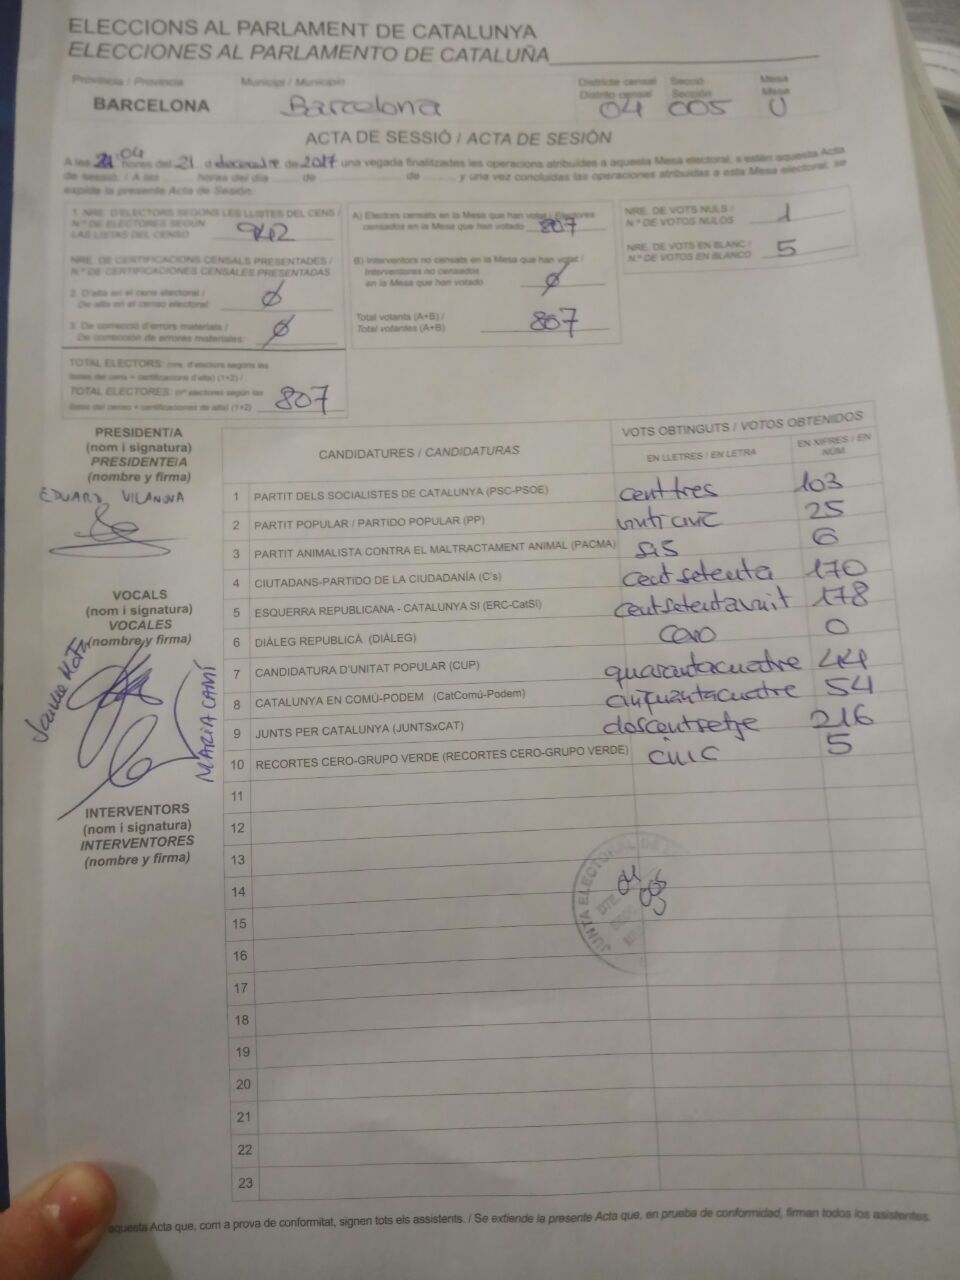 ELECCIONS AL PARLAMENT DE CATALUNYA
ELECCIONES AL PARLAMENTO DE CATALUÑA
Província / Provincia
BARCELONA
Municipi / Municipio
Barcelona
Districte censal
Distrito censal
04
Secció
Sección
005
Mesa
Mesa
U
ACTA DE SESSIÓ / ACTA DE SESIÓN
A les 21'04 hores del 21 d desembre de 2017 una vegada finalitzades les operacions atribuïdes a aquesta Mesa electoral, s'estén aquesta Acta
de sessió. / A las ........ horas del día ........ de ........ de ........ y una vez concluidas las operaciones atribuidas a esta Mesa electoral, se
expide la presente Acta de Sesión:
1. NRE. D'ELECTORS SEGONS LES LLISTES DEL CENS /
N.º DE ELECTORES SEGÚN
LAS LISTAS DEL CENSO
942
NRE. DE CERTIFICACIONS CENSALS PRESENTADES /
N.º DE CERTIFICACIONES CENSALES PRESENTADAS
2. D'alta en el cens electoral /
De alta en el censo electoral:
Ø
3. De correcció d'errors materials /
De corrección de errores materiales:
Ø
TOTAL ELECTORS: (nre. d'electors segons les
llistes del cens + certificacions d'alta) (1+2) /
TOTAL ELECTORES: (nº electores según las
listas del censo + certificaciones de alta) (1+2)
807
A) Electors censats en la Mesa que han votat / Electores
censados en la Mesa que han votado
807
B) Interventors no censats en la Mesa que han votat /
Interventores no censados
en la Mesa que han votado
Ø
Total votants (A+B) /
Total votantes (A+B)
807
NRE. DE VOTS NULS /
N.º DE VOTOS NULOS
1
NRE. DE VOTS EN BLANC /
N.º DE VOTOS EN BLANCO
5
PRESIDENT/A
(nom i signatura)
PRESIDENTE/A
(nombre y firma)
EDUARD VILANOVA
VOCALS
(nom i signatura)
VOCALES
(nombre y firma)
MARIA CAMÍ
INTERVENTORS
(nom i signatura)
INTERVENTORES
(nombre y firma)
CANDIDATURES / CANDIDATURAS
VOTS OBTINGUTS / VOTOS OBTENIDOS
EN LLETRES / EN LETRA
EN XIFRES / EN
NÚM.
1 PARTIT DELS SOCIALISTES DE CATALUNYA (PSC-PSOE) cent tres 103
2 PARTIT POPULAR / PARTIDO POPULAR (PP) 25
3 PARTIT ANIMALISTA CONTRA EL MALTRACTAMENT ANIMAL (PACMA) sis 6
4 CIUTADANS-PARTIDO DE LA CIUDADANÍA (C's) cent setenta 170
5 ESQUERRA REPUBLICANA - CATALUNYA SÍ (ERC-CatSí) cent setantavuit 178
6 DIÀLEG REPUBLICÀ (DIÀLEG) cero 0
7 CANDIDATURA D'UNITAT POPULAR (CUP) quarantacuatre 44
8 CATALUNYA EN COMÚ-PODEM (CatComú-Podem) cinquantacuatre 54
9 JUNTS PER CATALUNYA (JUNTSxCAT) doscentsetje 216
10 RECORTES CERO-GRUPO VERDE (RECORTES CERO-GRUPO VERDE) cinc 5
11
12
13
14
15
16
17
18
19
20
21
22
23
JUNTA ELECTORAL DE
04
005
aquesta Acta que, com a prova de conformitat, signen tots els assistents. / Se extiende la presente Acta que, en prueba de conformidad, firman todos los asistentes.